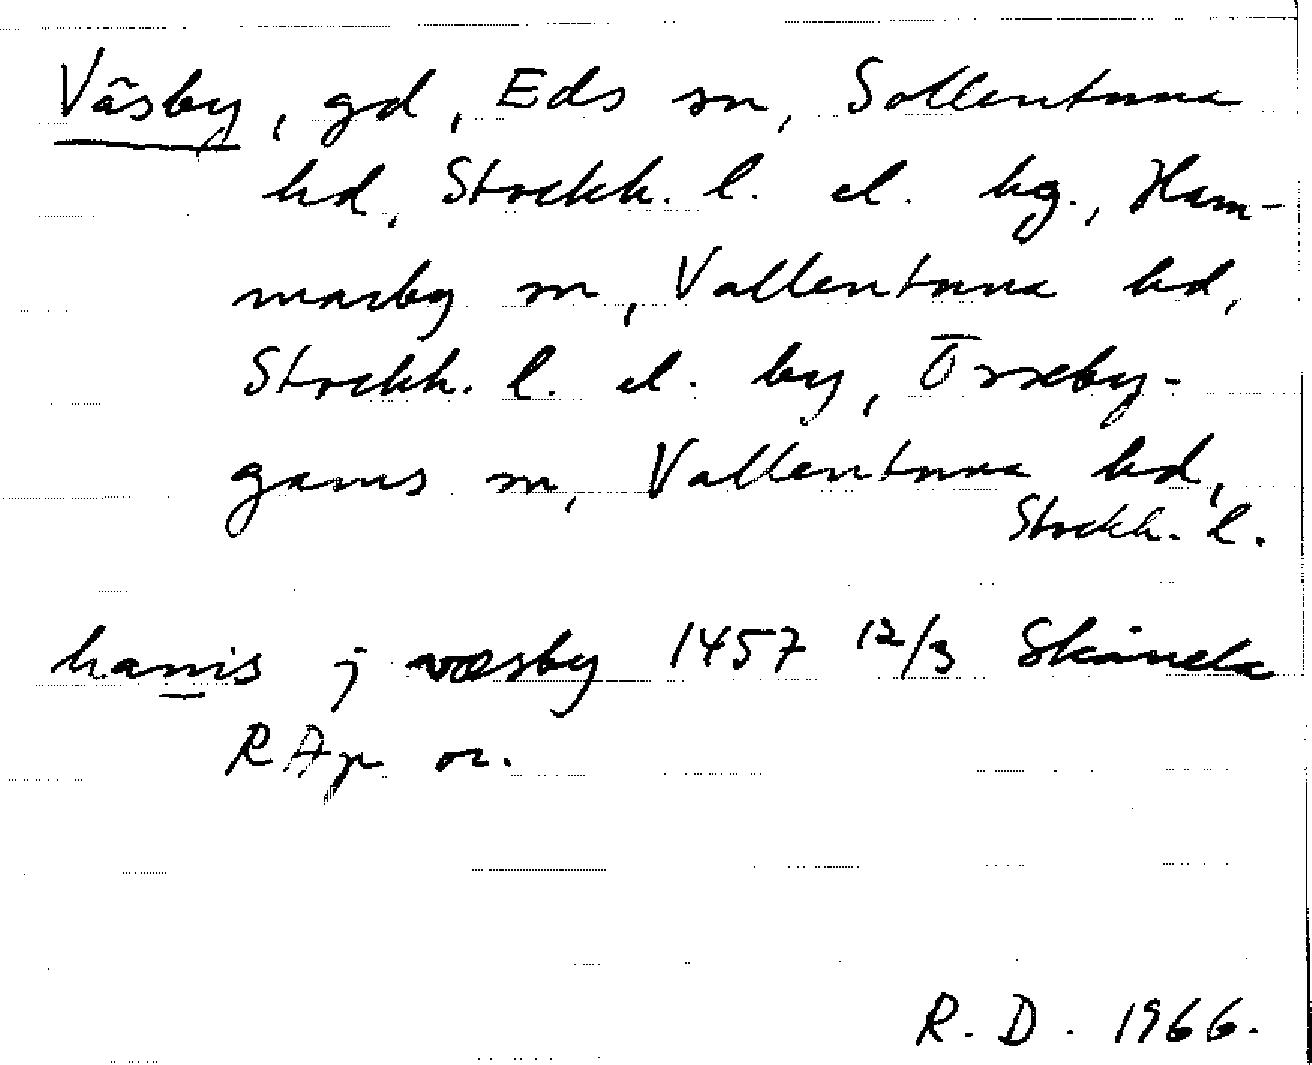 Väsby, gd, Eds sn, Sollentuna
hd, Stockh. l. el. hg., Ham-
marby sn, Vallentuna hd,
Stockh. l. el. by, Össeby-
garns sn, Vallentuna hd,
Stockh. l.
hannis j væsby 1457 12/3 Skånela
RAp or.
R. D. 1966.